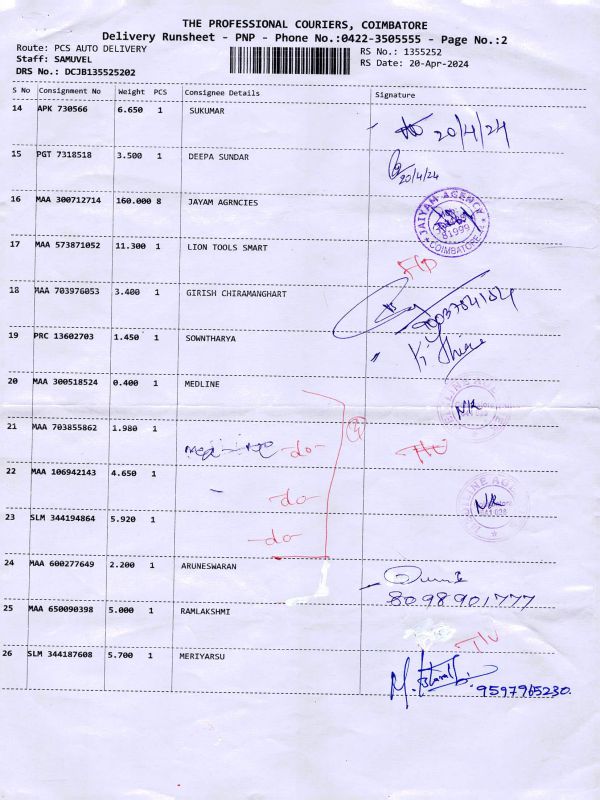 THE PROFESSIONAL COURIERS, COIMBATORE
Delivery Runsheet - PNP - Phone No.:0422-3505555 - Page No.:2
Route: PCS AUTO DELIVERY
RS No.: 1355252
Staff: SAMUVEL
RS Date: 20-Apr-2024
DRS No.: DCJB135525202
S No Consignment No Weight PCS Consignee Details Signature
14 APK 730566 6.650 1 SUKUMAR
20/4/24
15 PGT 7318518 3.500 1 DEEPA SUNDAR
20/4/24
16 MAA 300712714 160.000 8 JAYAM AGRNCIES
JAIYAM AGENCY
COIMBATORE
17 MAA 573871052 11.300 1 LION TOOLS SMART
18 MAA 703976053 3.400 1 GIRISH CHIRAMANGHART
19 PRC 13602703 1.450 1 SOWNTHARYA
20 MAA 300518524 0.400 1 MEDLINE
21 MAA 703855862 1.980 1 -do-
22 MAA 106942143 4.650 1 -do-
23 SLM 344194864 5.920 1 -do-
24 MAA 600277649 2.200 1 ARUNESWARAN
8098901777
25 MAA 650090398 5.000 1 RAMLAKSHMI
26 SLM 344187608 5.700 1 MERIYARSU
9597965230